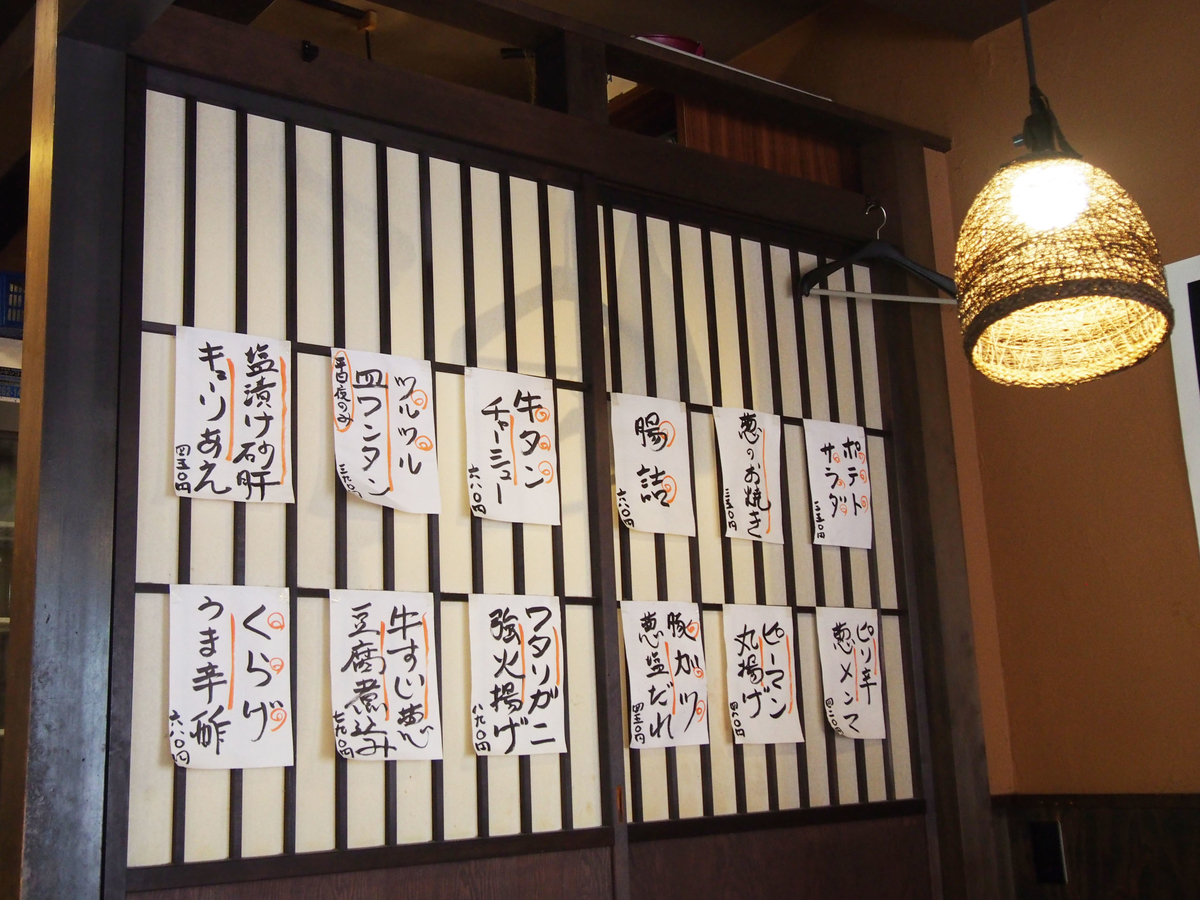 ポテト
サラダ
葱のお焼き
腸詰
六八〇円
牛タン
チャーシュー
六八〇円
ツルツル
皿ワンタン
平日夜のみ
塩漬け砂肝
キューリあえ
四五〇円
ピリ辛
葱メンマ
四二〇円
ピーマン
丸揚げ
四八〇円
豚ガツ
葱塩だれ
四五〇円
ワタリガニ
強火揚げ
八九〇円
牛すじ葱
豆腐煮込み
七九〇円
くらげ
うま辛酢
六八〇円